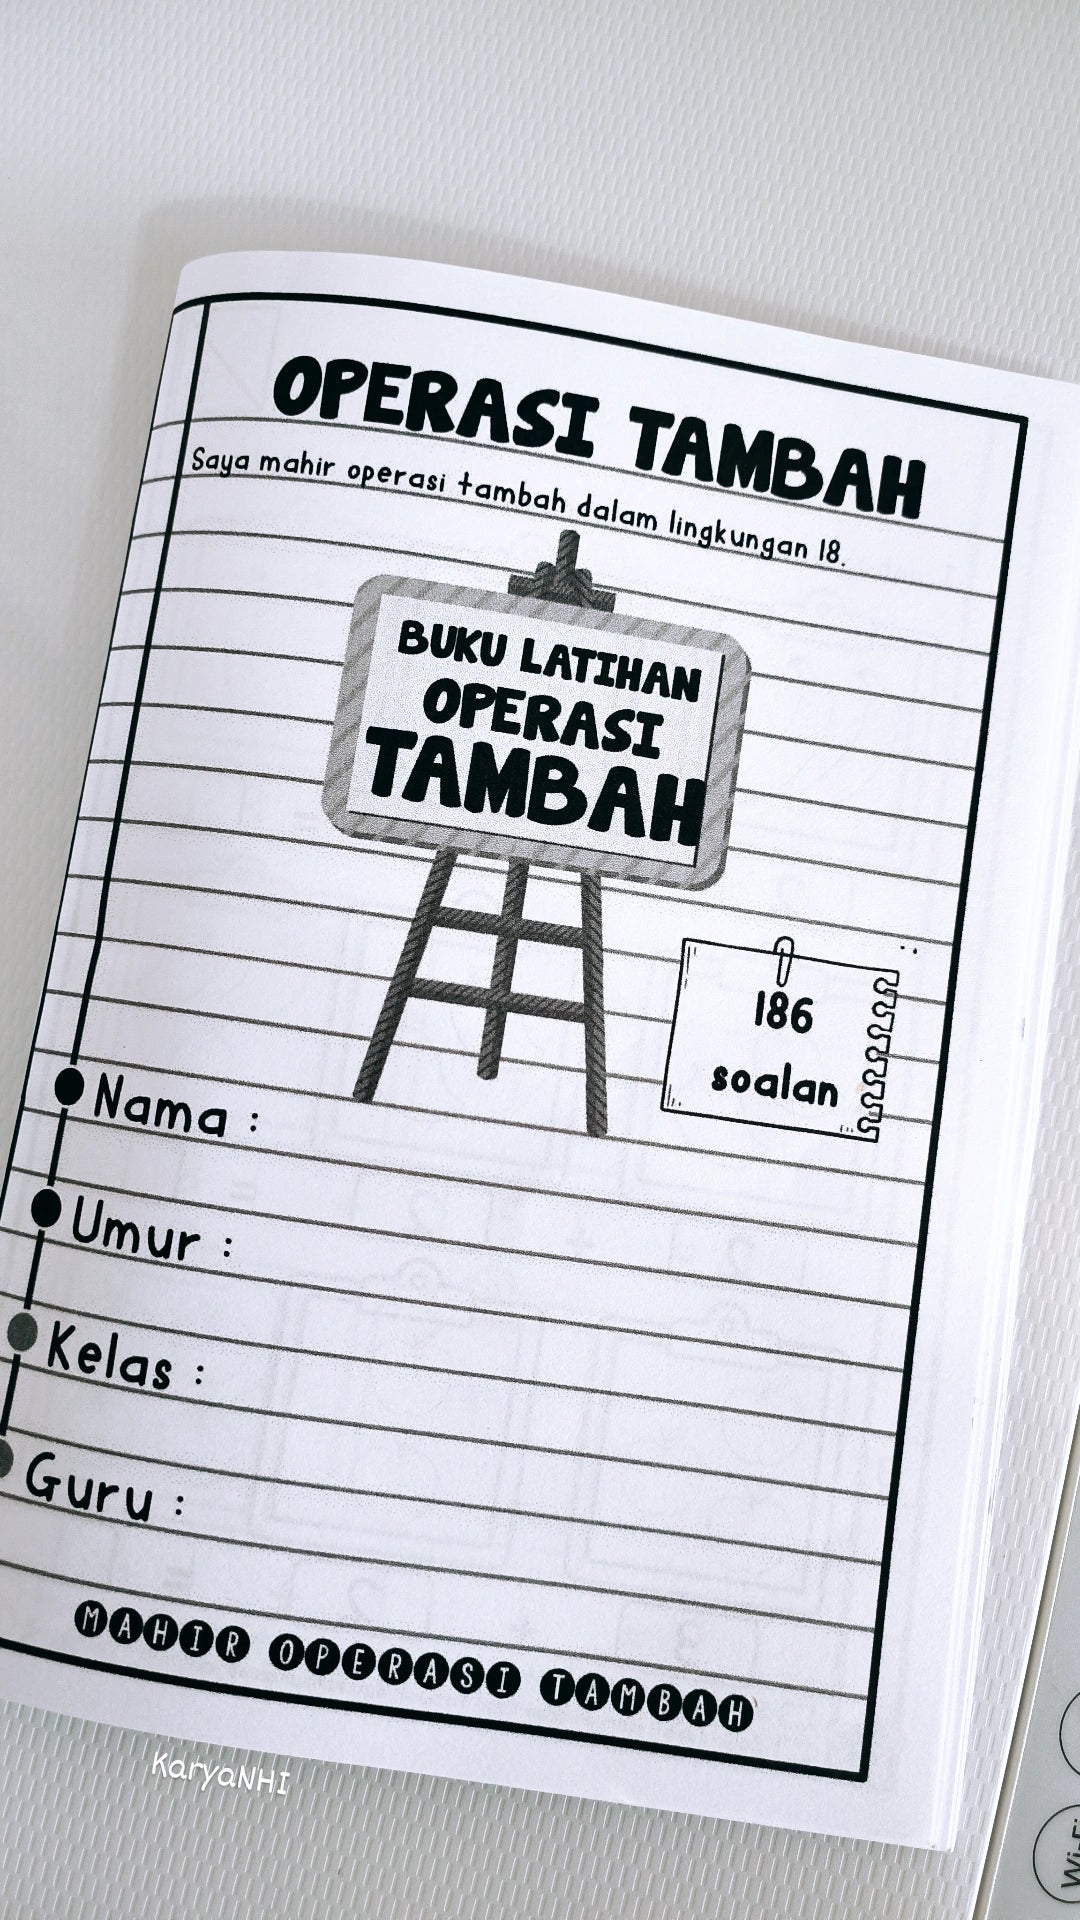 OPERASI TAMBAH
Saya mahir operasi tambah dalam lingkungan 18.
BUKU LATIHAN
OPERASI
TAMBAH
186
soalan
Nama :
Umur :
Kelas :
Guru :
MAHIR OPERASI TAMBAH
KaryaNHI
Wi-Fi